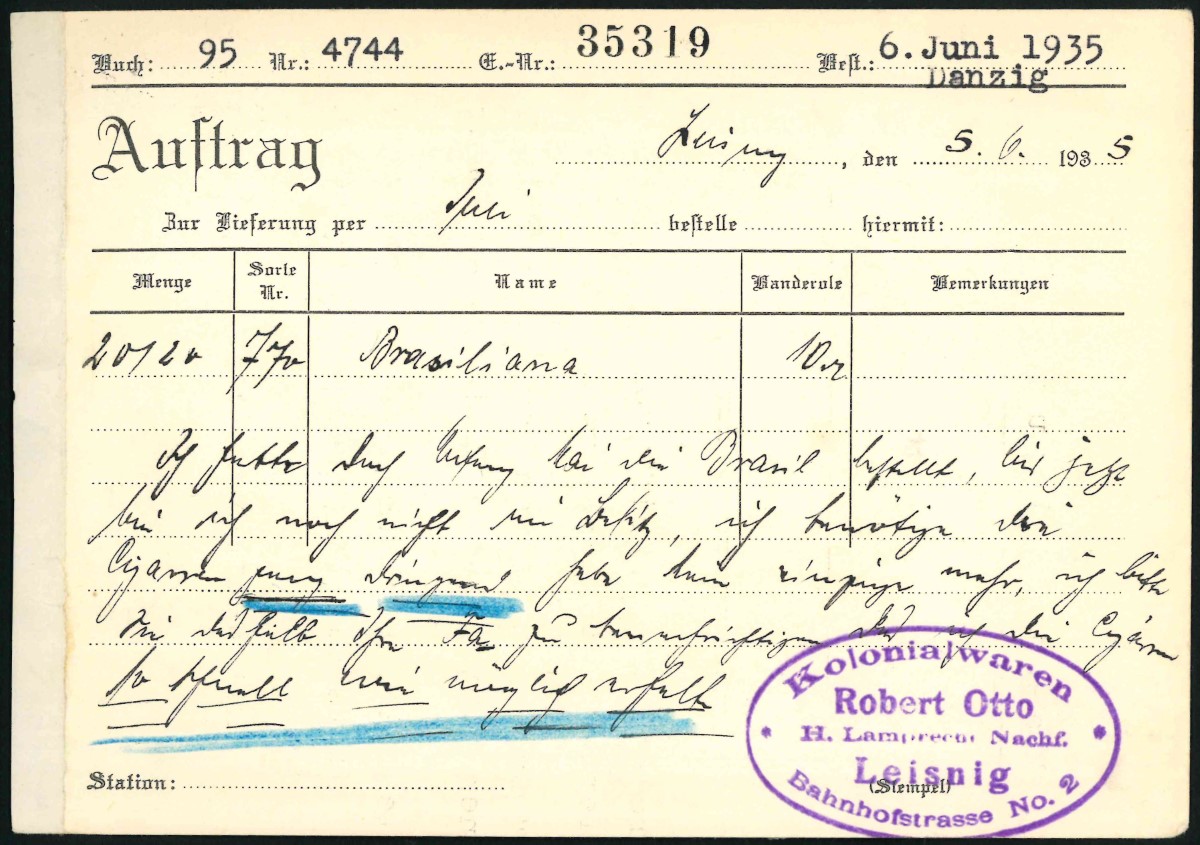 Buch: 95 Nr.: 4744 E.-Nr.: 35319 Best.: 6. Juni 1935
Danzig
Auftrag
Leisnig, den 5. 6. 1935
Zur Lieferung per Juli bestelle hiermit:
Menge Sorte Nr. Name Banderole Bemerkungen
20/20 770 Brasiliana 10
Ich hatte doch Anfang Mai die Brasil bestellt, bis jetzt
bin ich noch nicht im Besitz, ich benötige die
Cigarren ganz dringend habe keine einzige mehr, ich bitte
Sie deshalb Ihre Fa zu benachrichtigen das ich die Cigarren
so schnell wie möglich erhalte
Station:
(Stempel)
Kolonialwaren
Robert Otto
H. Lamprecht Nachf.
Leisnig
Bahnhofstrasse No. 2